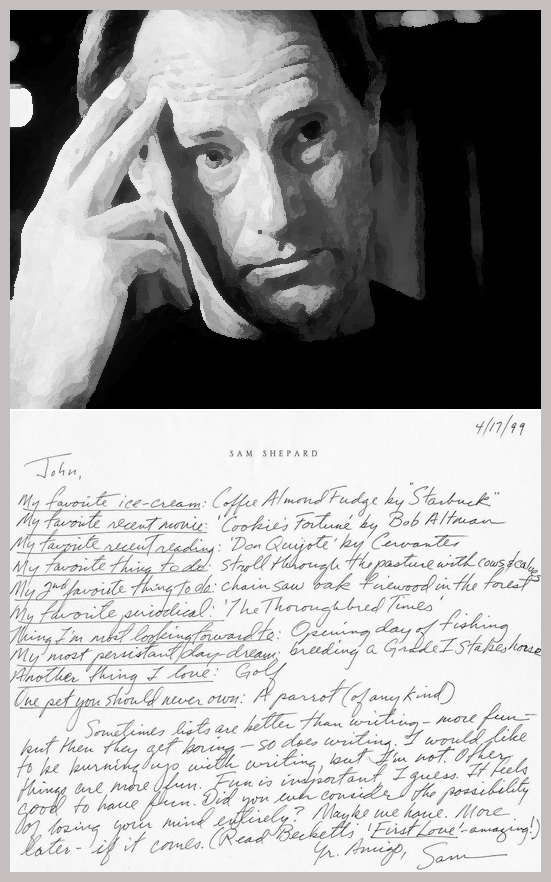 4/17/99
SAM SHEPARD
John,
My favorite ice-cream: Coffie Almond Fudge by "Starbuck"
My favorite recent movie: 'Cookie's Fortune by Bob Altman
My favorite recent reading: 'Don Quijote' by Cervantes
My favorite thing to do: stroll through the pasture with cows & calves
My 2nd favorite thing to do: chain saw oak firewood in the forest
My favorite periodical: 'The Thoroughbred Times
Thing I'm most looking forward to: Opening day of fishing
My most persistant day-dream: breeding a Grade I Stakes horse
Another thing I love: Golf
One pet you should never own: A parrot (of any kind)
Sometimes lists are better than writing - more fun -
but then they get boring - so does writing. I would like
to be burning up with writing, but I'm not. Other
things are more fun. Fun is important, I guess. It feels
good to have fun. Did you ever consider the possibility
of losing your mind entirely? Maybe we have. More
later - if it comes. (Read Becketts 'First Love' - amazing!)
Yr. Amigo, Sam